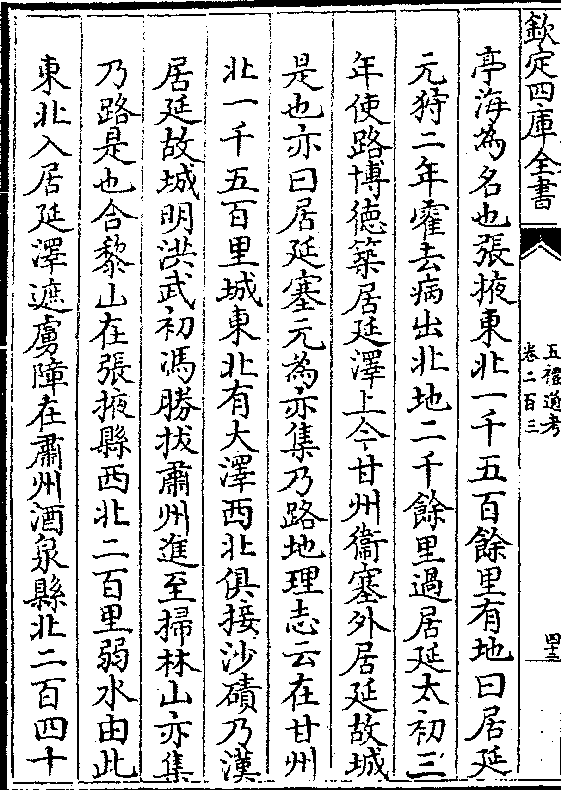 欽定四庫全書
五禮通考
卷二百三
亭海為名也張掖東北一千五百餘里有地曰居延
元狩二年霍去病出北地二千餘里過居延太初三
年使路博德築居延澤上今甘州衞塞外居延故城
是也亦曰居延塞元為亦集乃路地理志云在甘州
北一千五百里城東北有大澤西北俱接沙磧乃漢
居延故城明洪武初馮勝拔肅州進至掃林山亦集
乃路是也合黎山在張掖縣西北二百里弱水由此
東北入居延澤遮虜障在肅州酒泉縣北二百四十